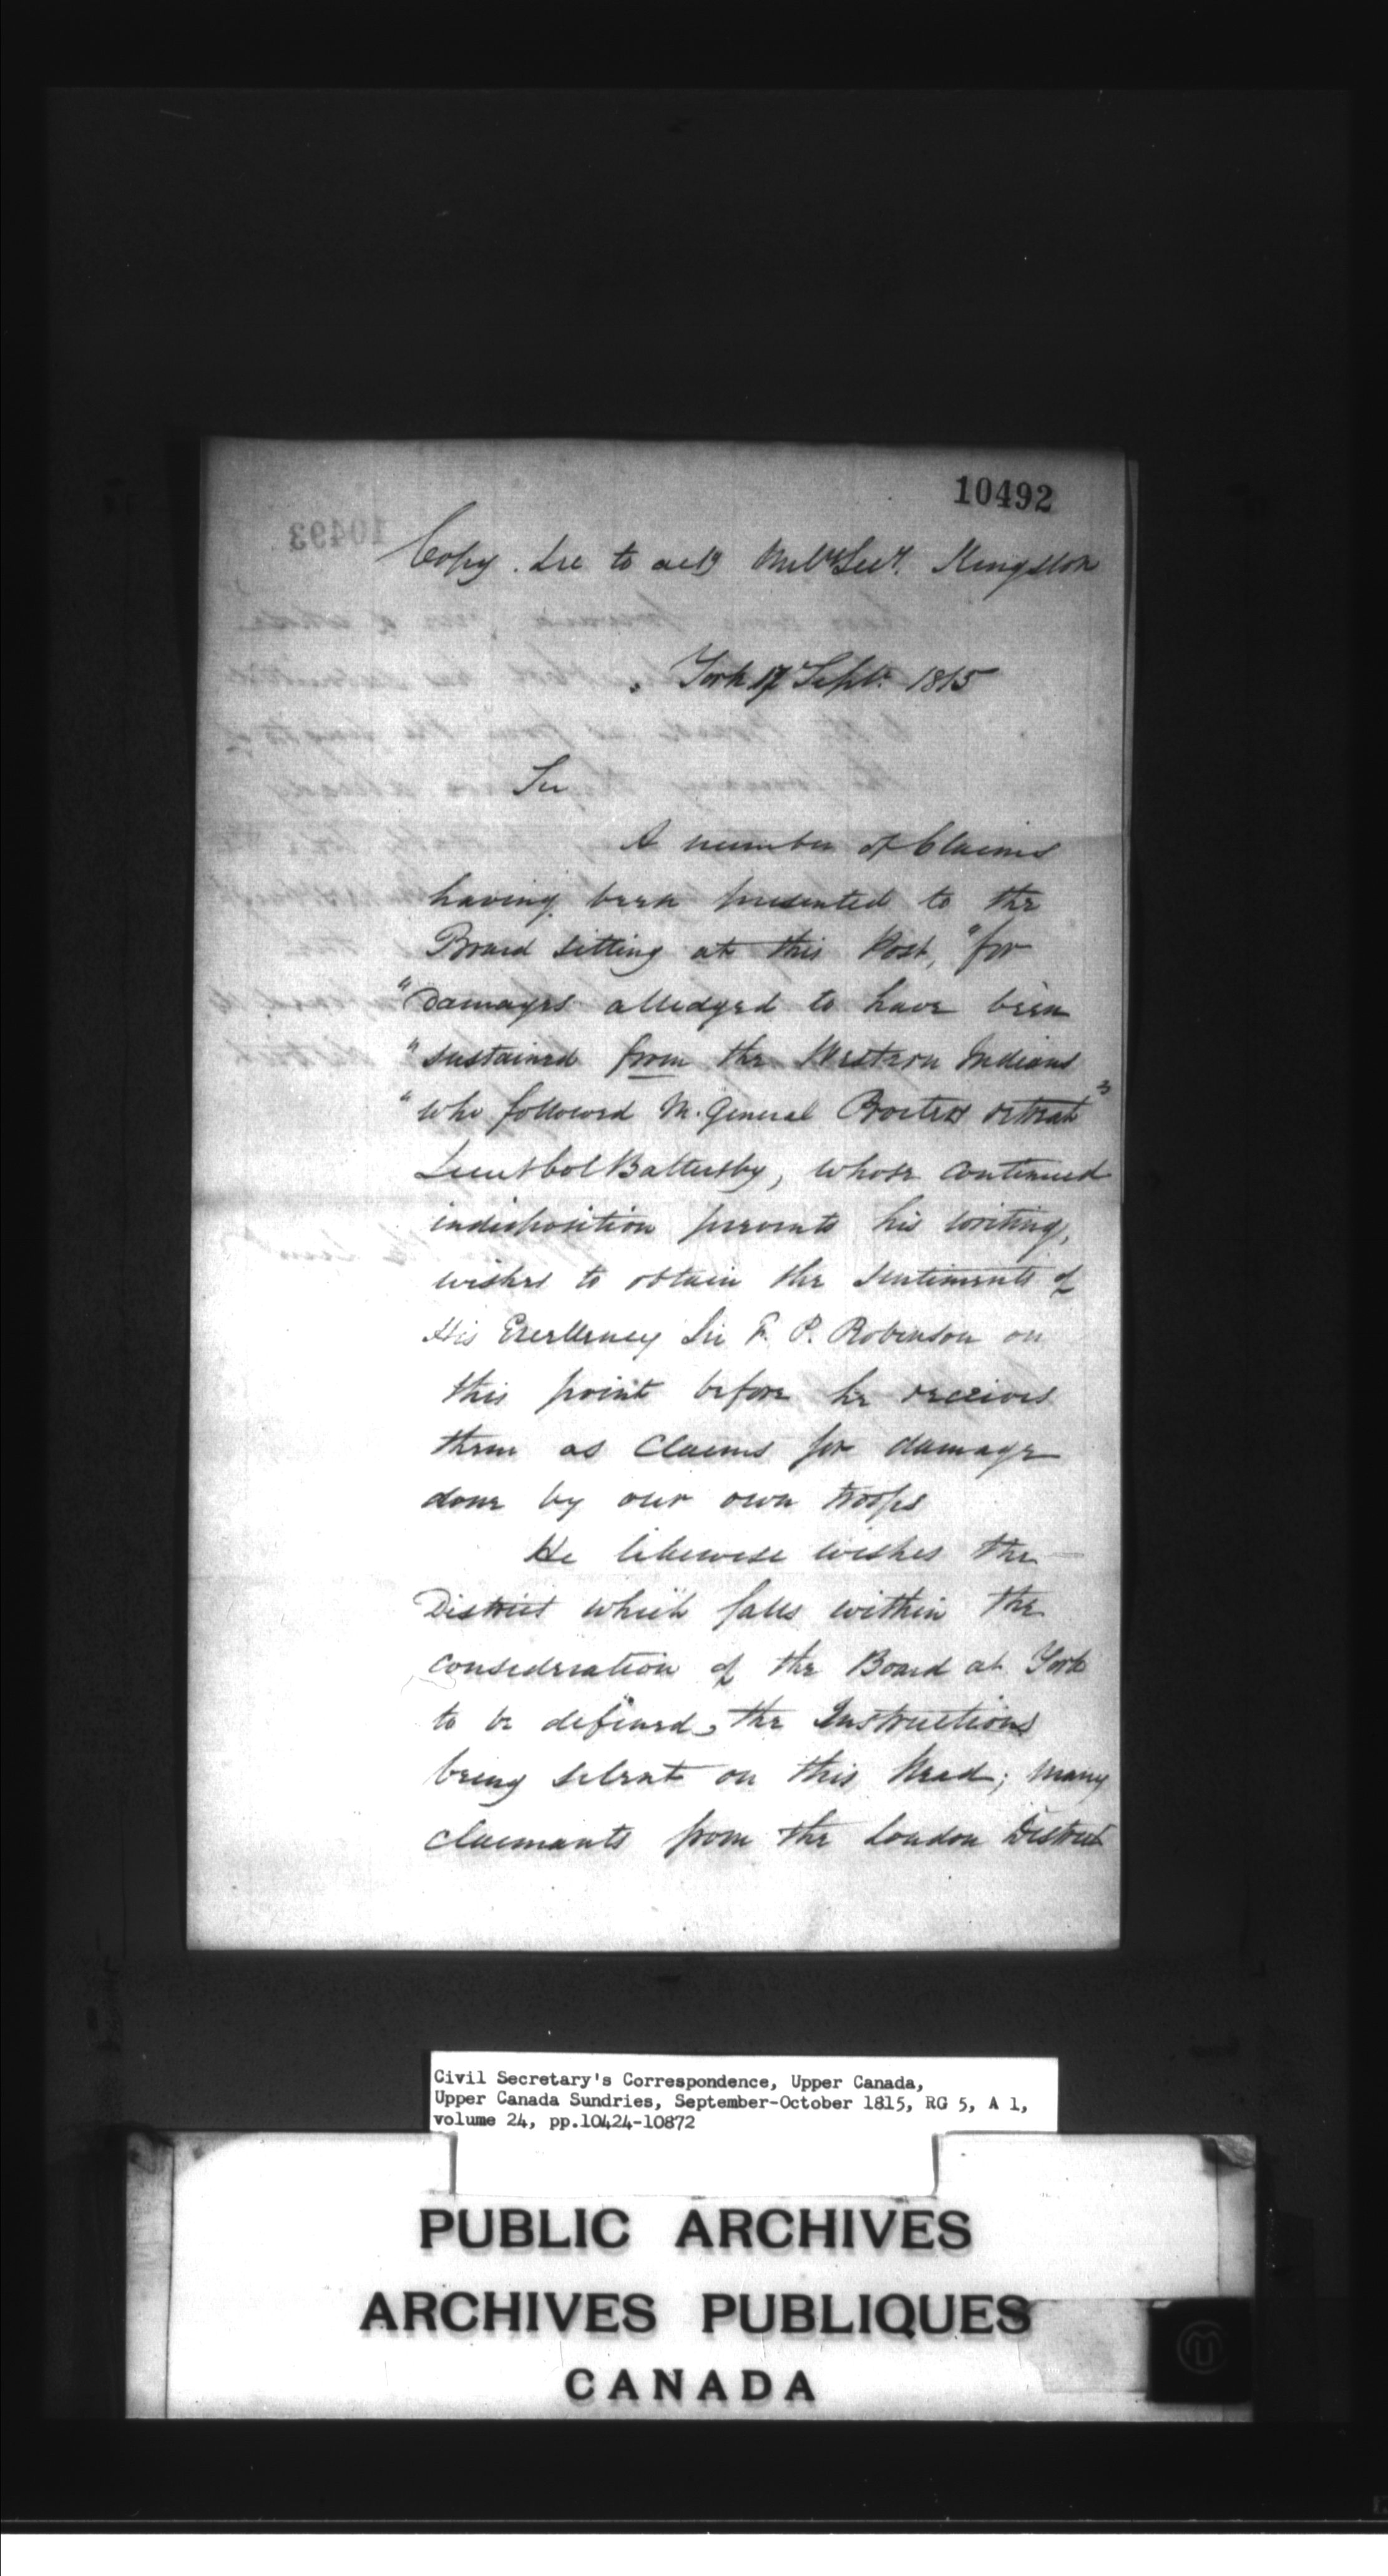 10492
Copy. Lre to actg Mily Secy. Kingston
York 17 Septr. 1815
Sir
A number of Claims
having been presented to the
Board sitting at this Post, "for
"Damages alledged to have been
"sustained from the Western Indians
"who followed M. General Procters retreat"
Lieut Col Battersby, whose continued
indisposition prevents his writing,
wishes to obtain the sentiments of
His Excellency Sir F. P. Robinson on
this point before he receives
them as Claims for damage
done by our own troops
He likewise wishes the
District which falls within the
consideration of the Board at York
to be defined, the Instructions
being silent on this head; many
claimants from the London District
Civil Secretary's Correspondence, Upper Canada,
Upper Canada Sundries, September-October 1815, RG 5, A 1,
volume 24, pp.10424-10872
PUBLIC ARCHIVES
ARCHIVES PUBLIQUES
CANADA